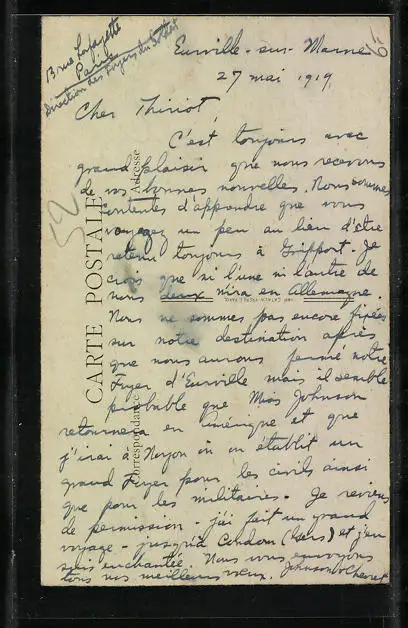 13 rue Lafayette
Paris
Direction des Foyers du Soldat
Eurville-sur-Marne
27 mai 1919
Cher Thiriot,
C'est toujours avec
grand plaisir que nous recevons
de vos bonnes nouvelles. Nous sommes
contentes d'apprendre que vous
voyagez un peu au lieu d'être
retenu toujours à Griffport. Je
crois que ni l'une ni l'autre de
nous deux n'ira en Allemagne.
Nous ne sommes pas encore fixées
sur notre destination après
que nous aurons fermé notre
Foyer d'Eurville mais il semble
probable que Miss Johnson
retournera en Amérique et que
j'irai à Noyon où on établit un
grand Foyer pour les civils ainsi
que pour les militaires. Je reviens
de permission - j'ai fait un grand
voyage - jusqu'à Condom (Gers) et j'en
suis enchantée. Nous vous envoyons
tous nos meilleurs vœux. Johnson
CARTE POSTALE
Correspondance
Adresse
52